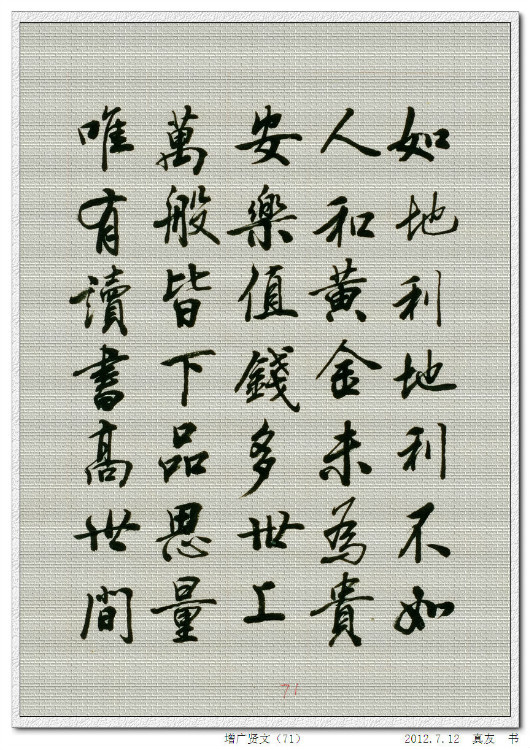 如地利地利不如
人和黃金未為貴
安樂值錢多世上
萬般皆下品思量
唯有讀書高世間
71
增广贤文（71）
2012.7.12 真友 书